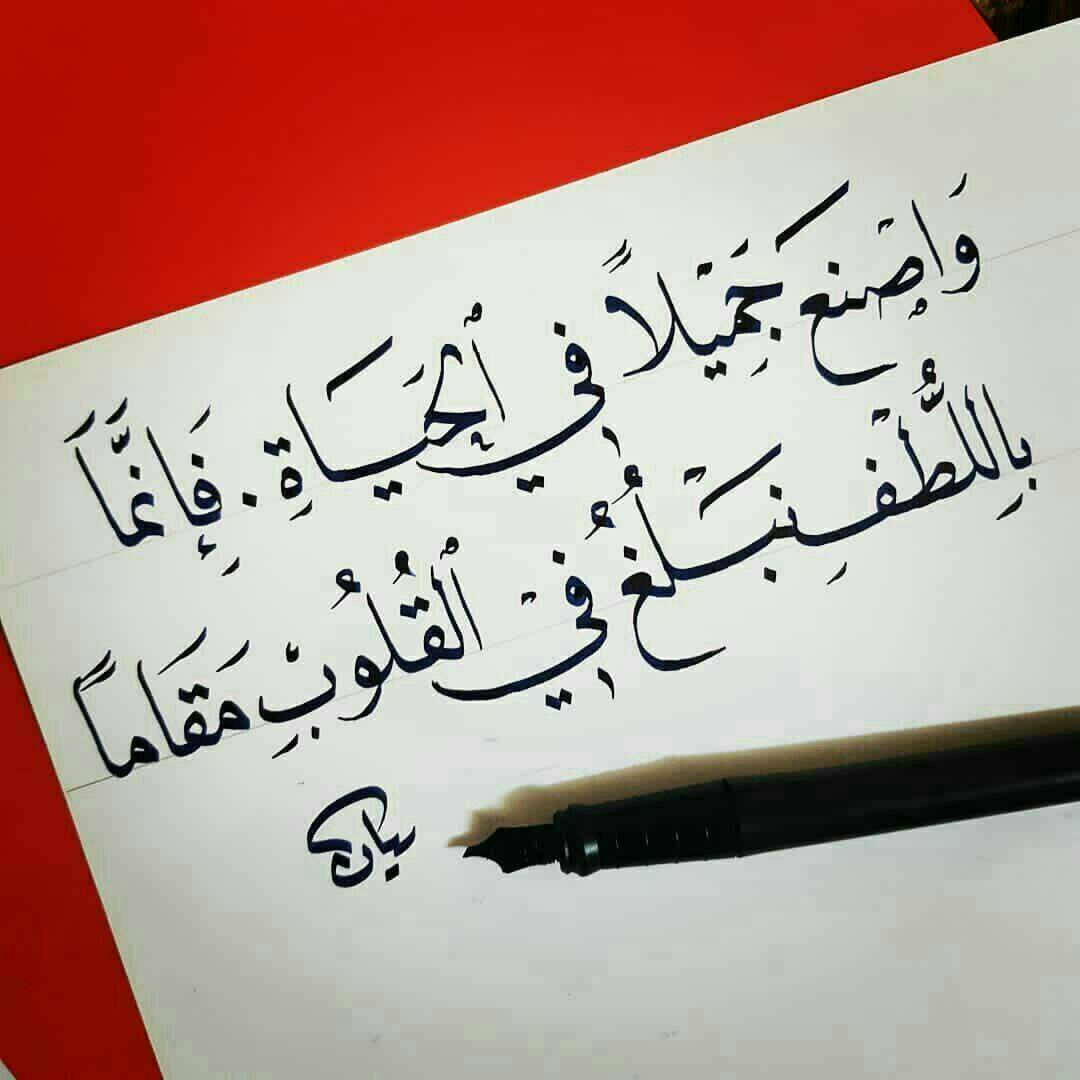 وَاصْنع جَمِيْلاً في ٱلْحَيَاةِ. فَإِنمَّاَ
بِاللُّطْفِ نبْلُغُ فيْ ٱلْقُلُوبِْ مَقَاماً